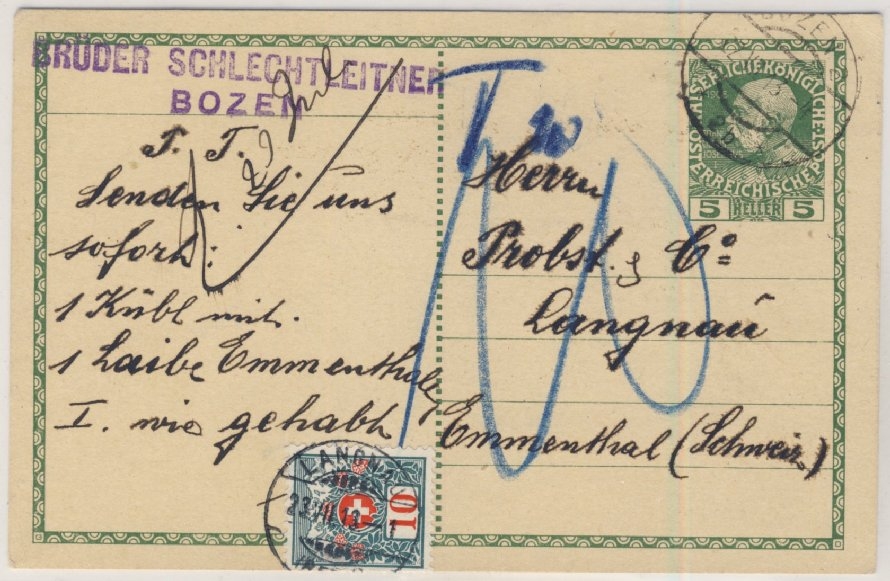 BRÜDER SCHLECHTLEITNER
BOZEN
T. T.
Senden Sie uns
sofort:
1 Kübl mit
1 Laibe Emmenthaler
I. wie gehabt
T 10
Herrn
Probst & Co
Langnau
Emmenthal (Schweiz)
BOZEN
KAISERLICHE KÖNIGLICHE
ÖSTERREICHISCHE POST
5 HELLER 5
LANGNAU
23.VII.13
10